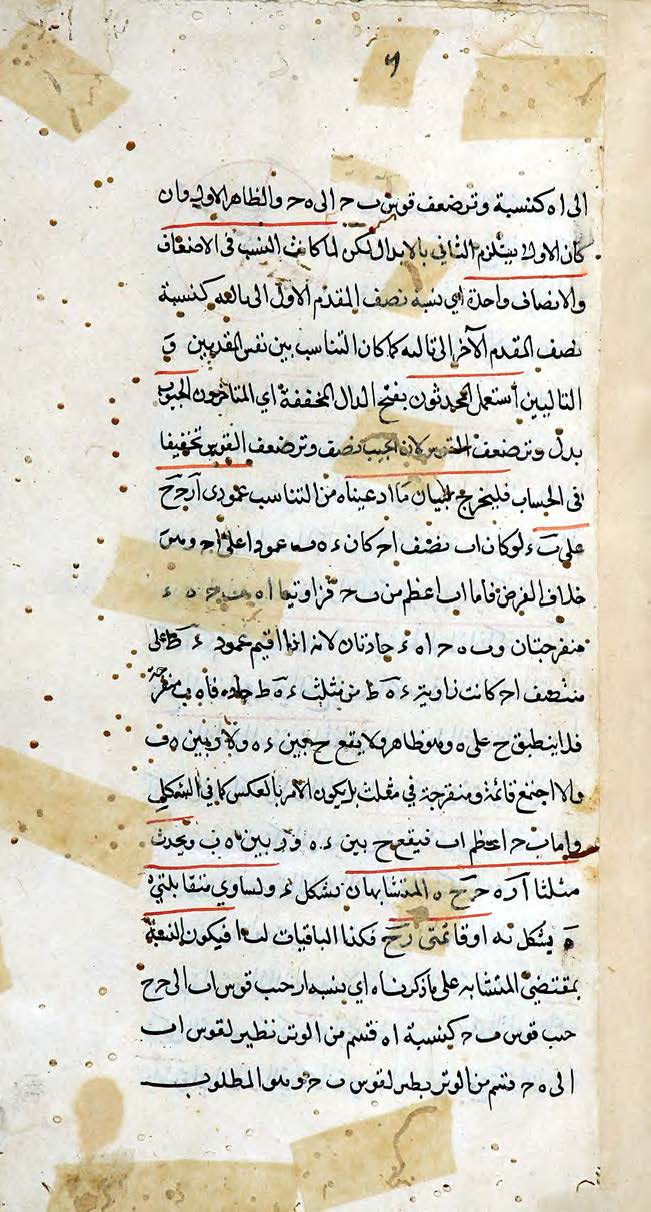 الى اه كنسبة وتر ضعف قوس ب ح الى ه ح والظاهر الاول وان
كان الاول يستلزم الثاني بالابدال لكن لما كانت النسب فى الاضعاف
والانصاف واحدة اي نسبة نصف المقدم الاول الى تاليه كنسبة
نصف المقدم الآخر الى تاليه كما كان التناسب بين نفس المقدمين و
التاليين استعمل المحدثون بفتح الدال المخففة اي المتاخرون الجيوب
بدل وتر ضعف القوس لان الجيب نصف وتر ضعف القوس تخفيفا
فى الحساب فليخرج لبيان ما ادعيناه من التناسب عمودى آر ح ح
على ب ء لو كان اب نصف اح كان ء ه ب عمودا على اح وليس
خلاف الفرض فاما اب اعظم من ب ح فزاويتا اه ب ح ه ء
منفرجتان و ب ه ح اه ء حادتان لانه اذا اقيم عمود ء ط على
منتصف اح كانت زاوية ء ه ط من مثلث ء ه ط حادة فاه ب منفرجة
فلا ينطبق ح على ه وهو ظاهر ولا يقع ح بين ء ه ولا ر بين ه ب
والا اجتمع قائمة ومنفرجة في مثلث بل يكون الامر بالعكس كما في الشكل
واما ب ح اعظم اب فيقع ح بين ء ه و ر بين ه ب ويحدث
مثلثا آ ر ه ح ح ه المتشابهان بشكل ء ولساوي متقابلتي
ه بشكل يه او قائمتى ر ح فكذا الباقيات لب ا فيكون النسبة
بمقتضى المتشابه على ما ذكرناه اي نسبة ار جيب قوس اب الى ح ح
جيب قوس ب ح كنسبة اه قسم من الوتر نظير لقوس اب
الى ه ح قسم من الوتر نظير لقوس ب ح وهو المطلوب